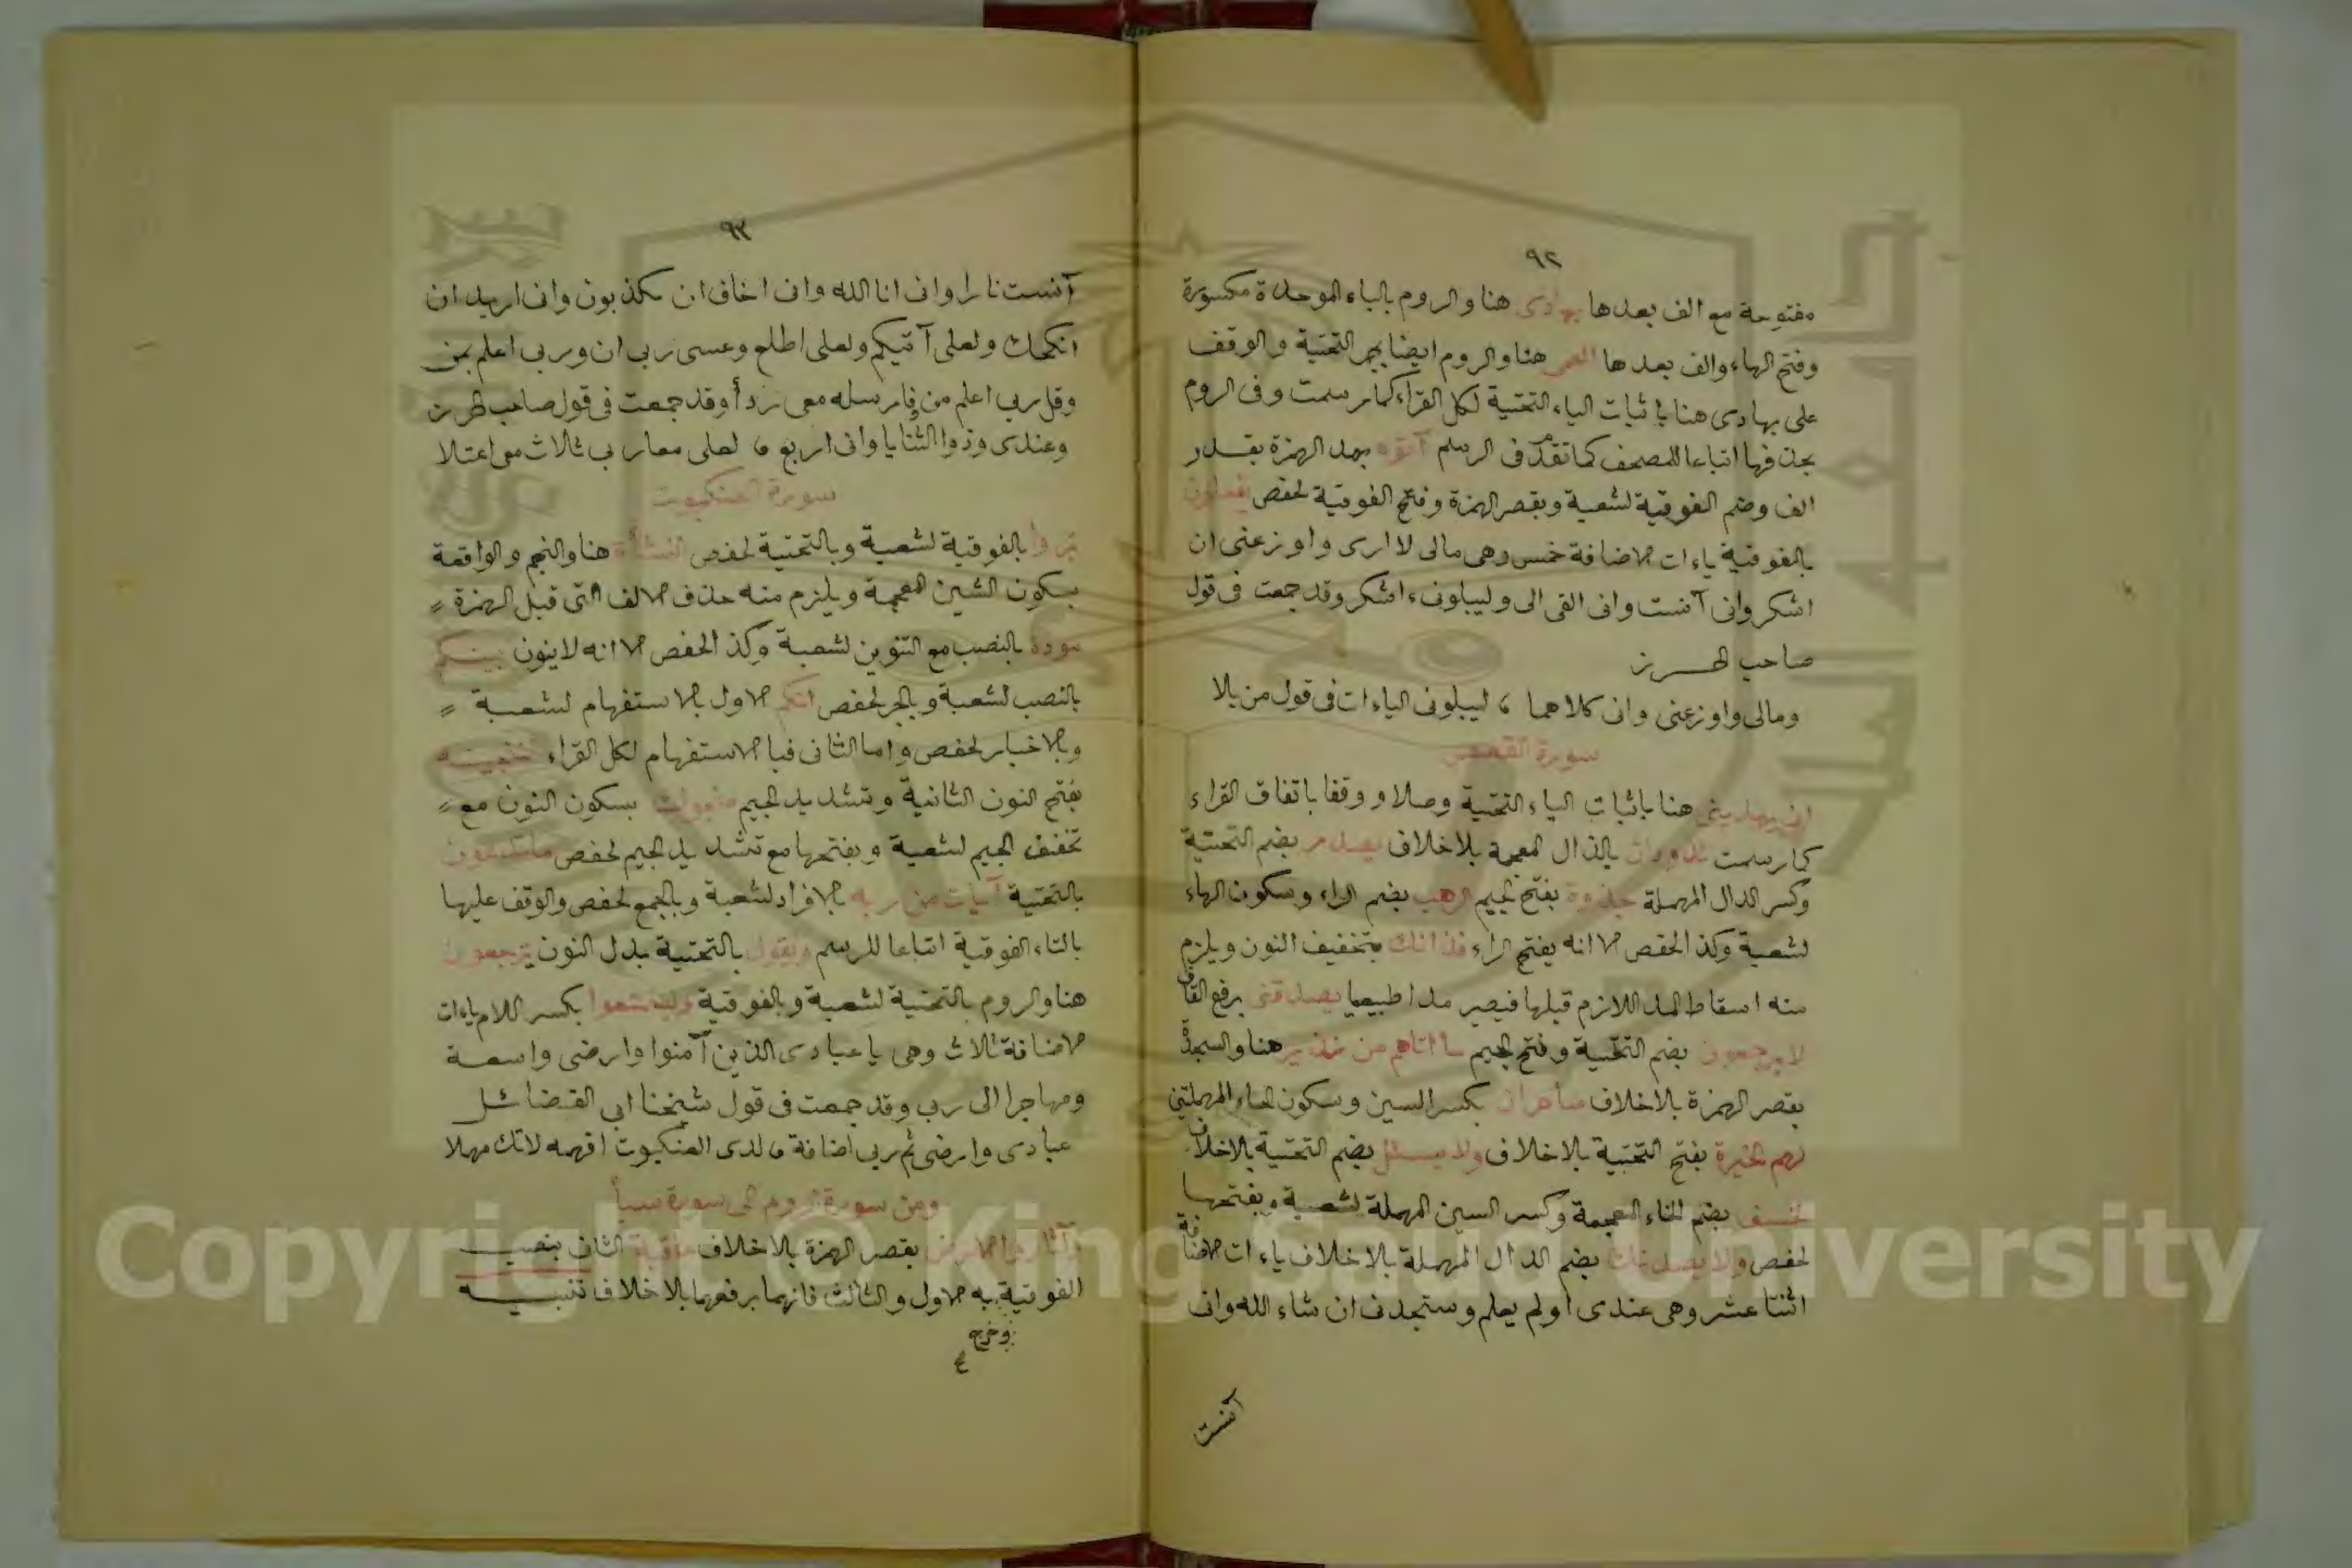 ٩٢
مفتوحة مع الف بعدها بهادى هنا والروم بالباء الموحدة مكسورة
وفتح الهاء والف بعدها العمى هنا والروم ايضا بجر التحتية والوقف
على بهادى هنا باثبات الياء التحتية لكل القراء كما رسمت وفى الروم
بحذفها اتباعا للمصحف كما تقدم فى الرسم آتوه بمد الهمزة بقدر
الف وضم الفوقية لشعبة وبقصر الهمزة وفتح الفوقية لحفص يفعلون
بالفوقية ياءات الاضافة خمس وهى مالى لا ارى واوزعنى ان
اشكر وانى آنست وانى القى الى وليبلونى ءاشكر وقد جمعت فى قول
صاحب الحرز
ومالى واوزعنى وانى كلاهما ، ليبلونى الياءات فى قول من بلا
سورة القصص
ان يهدينى هنا باثبات الياء التحتية وصلا ووقفا باتفاق القراء
كما رسمت تذودان بالذال المعجمة بلا خلاف يصدر بضم التحتية
وكسر الدال المهملة جذوة بفتح الجيم الرهب بضم الراء وسكون الهاء
لشعبة وكذا لحفص الا انه يفتح الراء فذانك بتخفيف النون ويلزم
منه اسقاط المد اللازم قبلها فيصير مدا طبيعيا يصدقنى برفع القاف
لا يرجعون بضم التحتية وفتح الجيم ما اتاهم من نذير هنا والسجدة
بقصر الهمزة بلا خلاف ساحران بكسر السين وسكون الحاء المهملتين
لهم الخيرة بفتح التحتية بلا خلاف ولا يسئل بضم التحتية بلا خلاف
لخسف بضم الخاء المعجمة وكسر السين المهملة لشعبة وبفتحها
لحفص ولا يصدنك بضم الدال المهملة بلا خلاف ياءات الاضافة
اثنتا عشر وهى عندى اولم يعلم وستجدنى ان شاء الله وانى
آنست
٩٣
آنست نارا وانى انا الله وانى اخاف ان يكذبون وانى اريد ان
انكحك ولعلى آتيكم ولعلى اطلع وعسى ربى ان وربى اعلم بمن
وقل ربى اعلم من فارسله معى ردأ وقد جمعت فى قول صاحب الحرز
وعندى وذوا الثنايا وانى اربع ، لعلى معا ربى ثلاث معى اعتلا
سورة العنكبوت
يروا بالفوقية لشعبة وبالتحتية لحفص النشأة هنا والنجم والواقعة
بسكون الشين المعجمة ويلزم منه حذف الالف التى قبل الهمزة
مودة بالنصب مع التنوين لشعبة وكذا لحفص الا انه لا ينون بينكم
بالنصب لشعبة وبالجر لحفص انكم الاول بالاستفهام لشعبة
وبالاخبار لحفص واما الثانى فبالاستفهام لكل القراء لننجينه
بفتح النون الثانية وتشديد الجيم منجوك بسكون النون مع
تخفيف الجيم لشعبة وبفتحها مع تشديد الجيم لحفص ما تدعون
بالتحتية آيات من ربه بالافراد لشعبة وبالجمع لحفص والوقف عليها
بالتاء الفوقية اتباعا للرسم ويقول بالتحتية بدل النون يرجعون
هنا والروم بالتحتية لشعبة وبالفوقية وليتمتعوا بكسر اللام ياءات
الاضافة ثلاث وهى يا عبادى الذين آمنوا وارضى واسعة
ومهاجرا الى ربى وقد جمعت فى قول شيخنا ابى الفضائل
عبادى وارضى ثم ربى اضافة ، لدى العنكبوت افهمه لا تك مهلا
ومن سورة الروم الى سورة سبأ
وآثار الارض بقصر الهمزة بلا خلاف عاقبة الثانى بنصب
الفوقية به الاول والثالث فانهما برفعهما بلا خلاف تنبيه
وخرج
Copyright © King Saud University